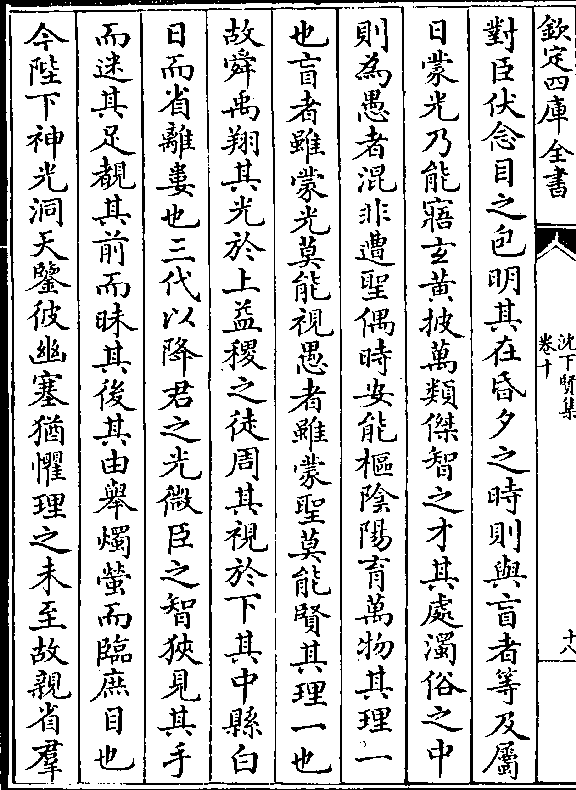 欽定四庫全書
沈下賢集
卷十
十八
對臣伏念目之包明其在昏夕之時則與盲者等及屬
日蒙光乃能寤玄黄披萬類傑智之才其處濁俗之中
則為愚者混非遭聖偶時安能樞陰陽育萬物其理一
也盲者雖蒙光莫能視愚者雖蒙聖莫能賢其理一也
故舜禹翔其光於上益稷之徒周其視於下其中縣白
日而省離婁也三代以降君之光微臣之智狹見其手
而迷其足覩其前而昧其後其由舉燭螢而臨庶目也
今陛下神光洞天鑒彼幽塞猶懼理之未至故親省羣